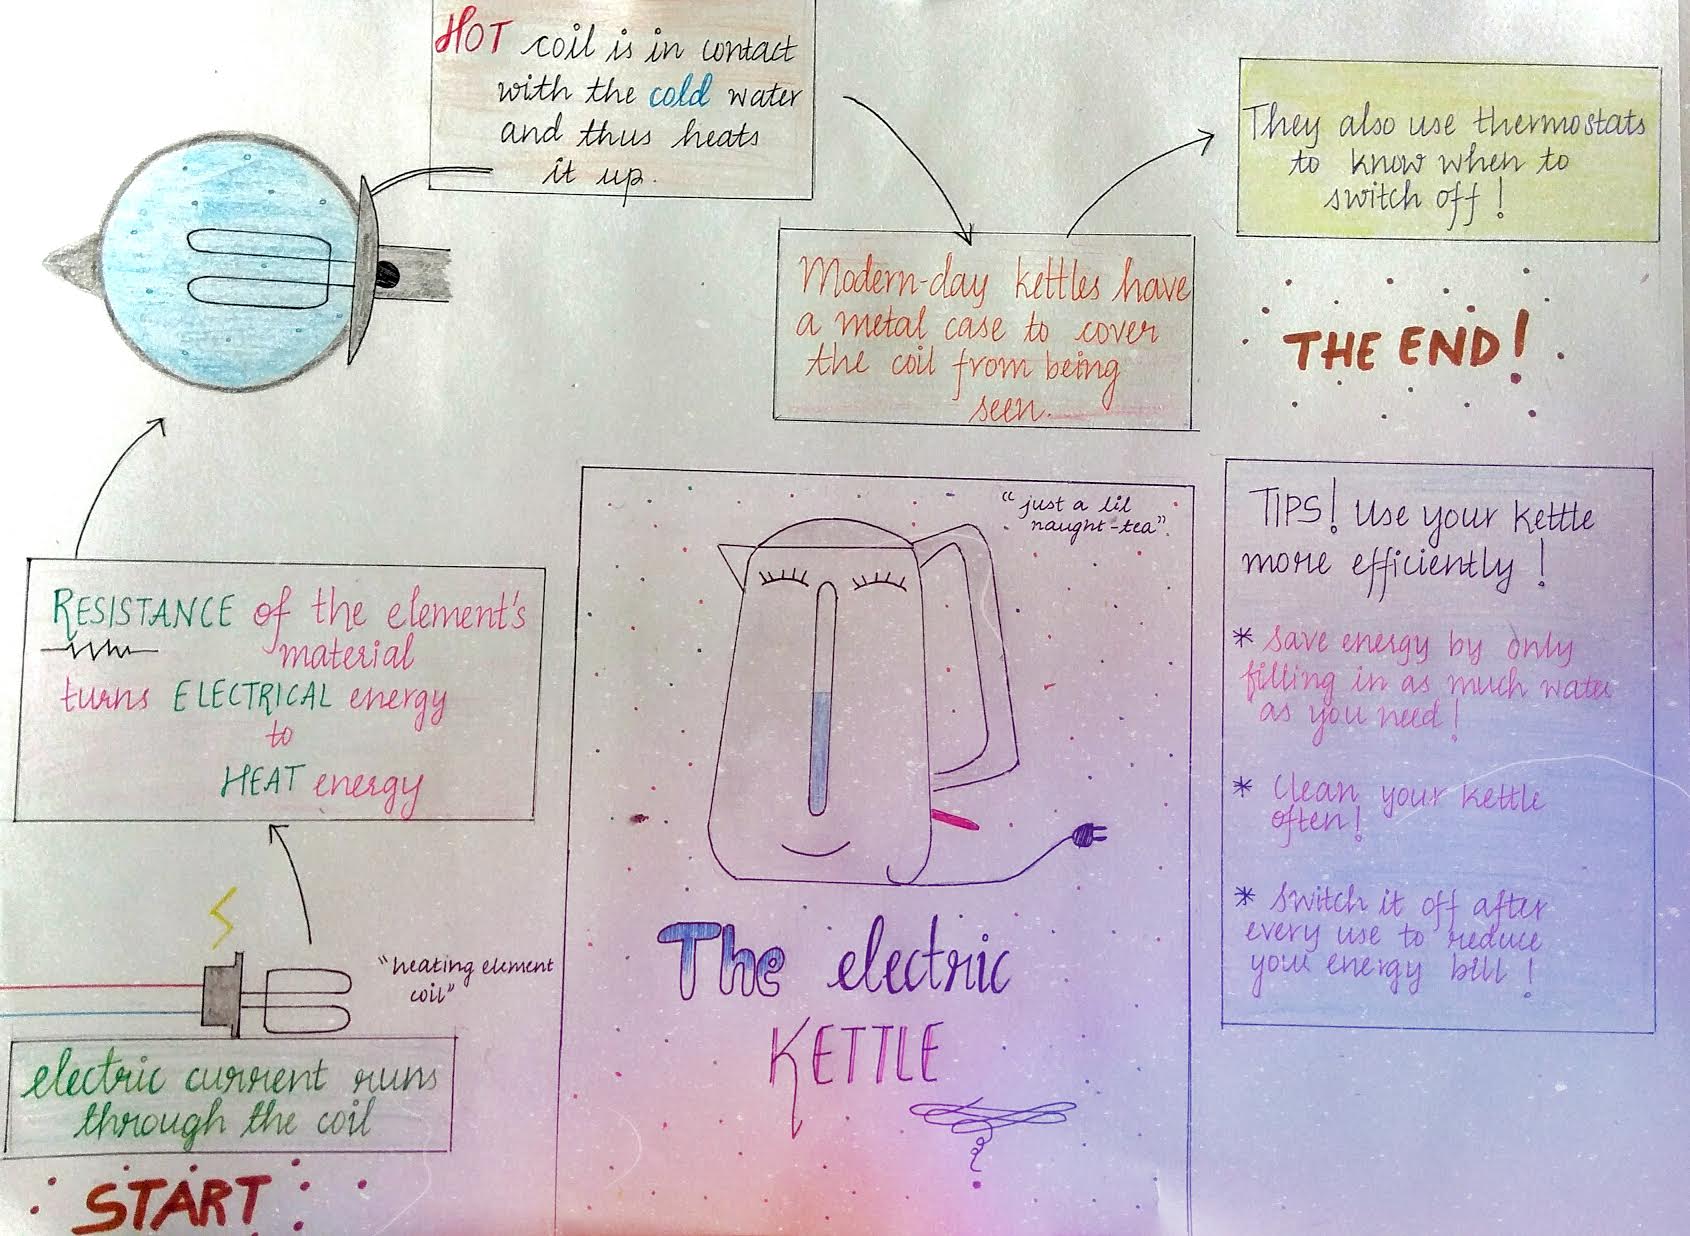 START
electric current runs
through the coil
"heating element
coil"
RESISTANCE of the element's
material
turns ELECTRICAL energy
to
HEAT energy
HOT coil is in contact
with the cold water
and thus heats
it up.
Modern-day kettles have
a metal case to cover
the coil from being
seen.
They also use thermostats
to know when to
switch off!
THE END!
"just a lil
naught-tea".
The electric
KETTLE
TIPS! Use your kettle
more efficiently!
* save energy by only
filling in as much water
as you need!
* Clean your kettle
often!
* switch it off after
every use to reduce
your energy bill!